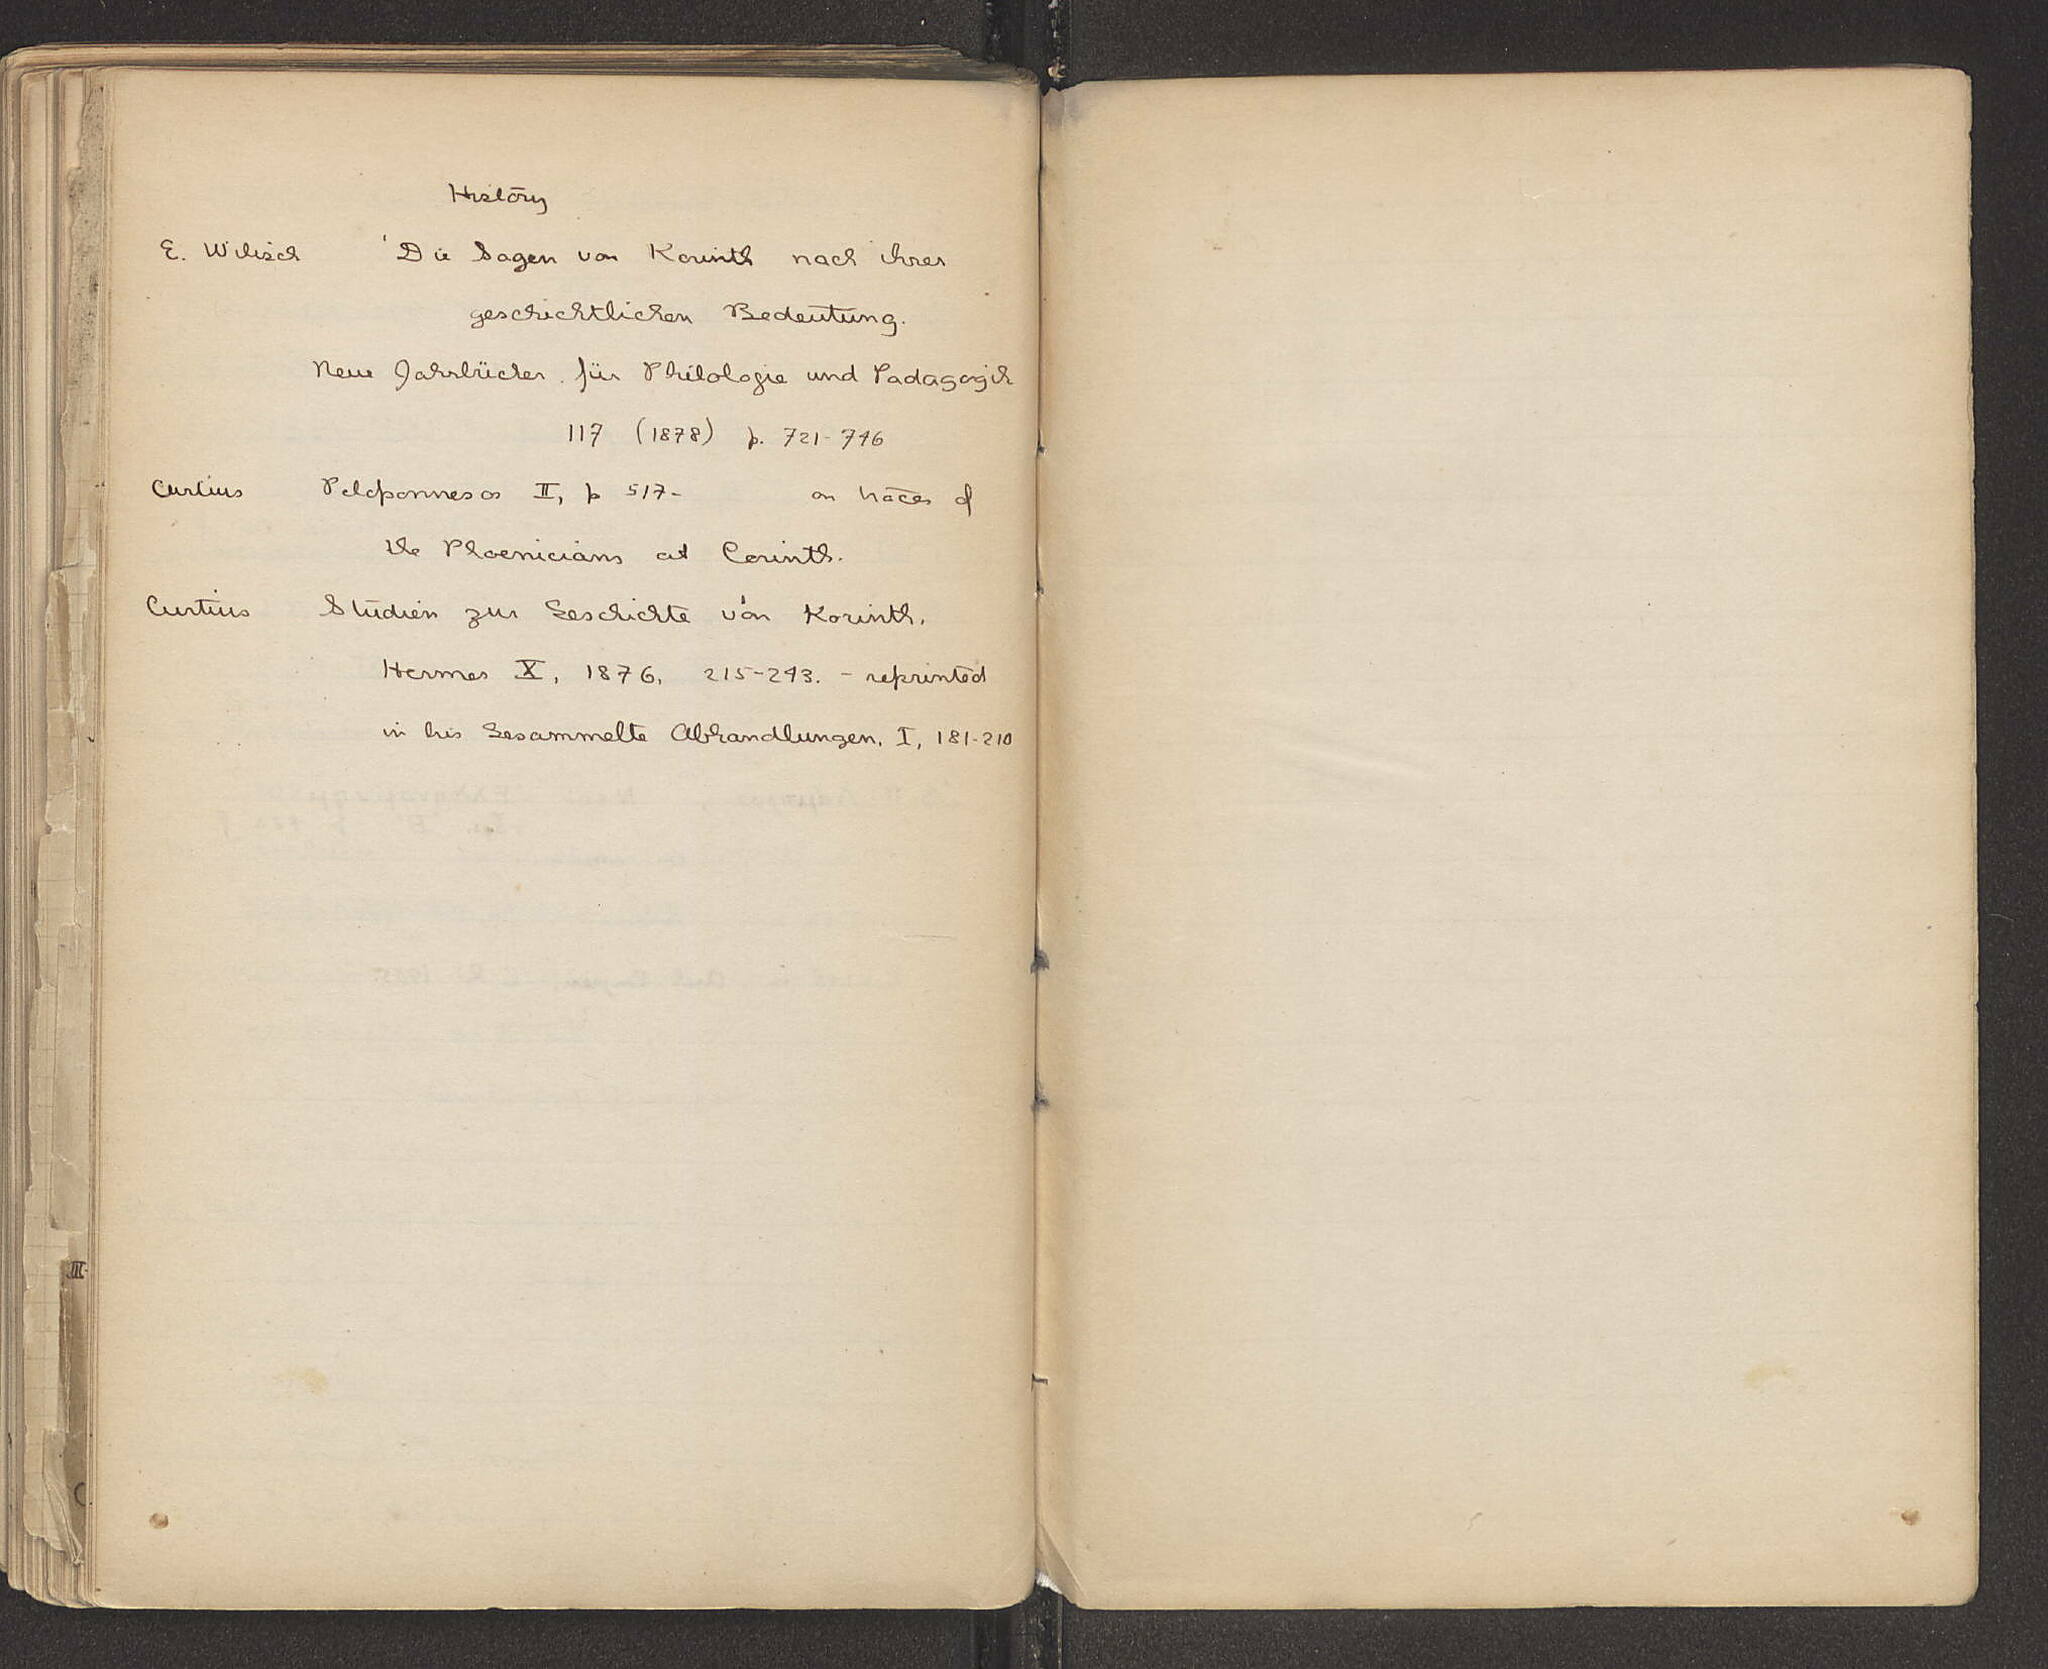 History
E. Wilisch 'Die Sagen von Korinth nach ihrer
geschichtlichen Bedeutung.
Neue Jahrbücher für Philologie und Padagogik
117 (1878) p. 721-746
Curtius Peloponnesos II, p 517- on traces of
the Phoenicians at Corinth.
Curtius Studien zur Geschichte von Korinth.
Hermes X, 1876, 215-243. - reprinted
in his Gesammelte Abhandlungen, I, 181-210
III